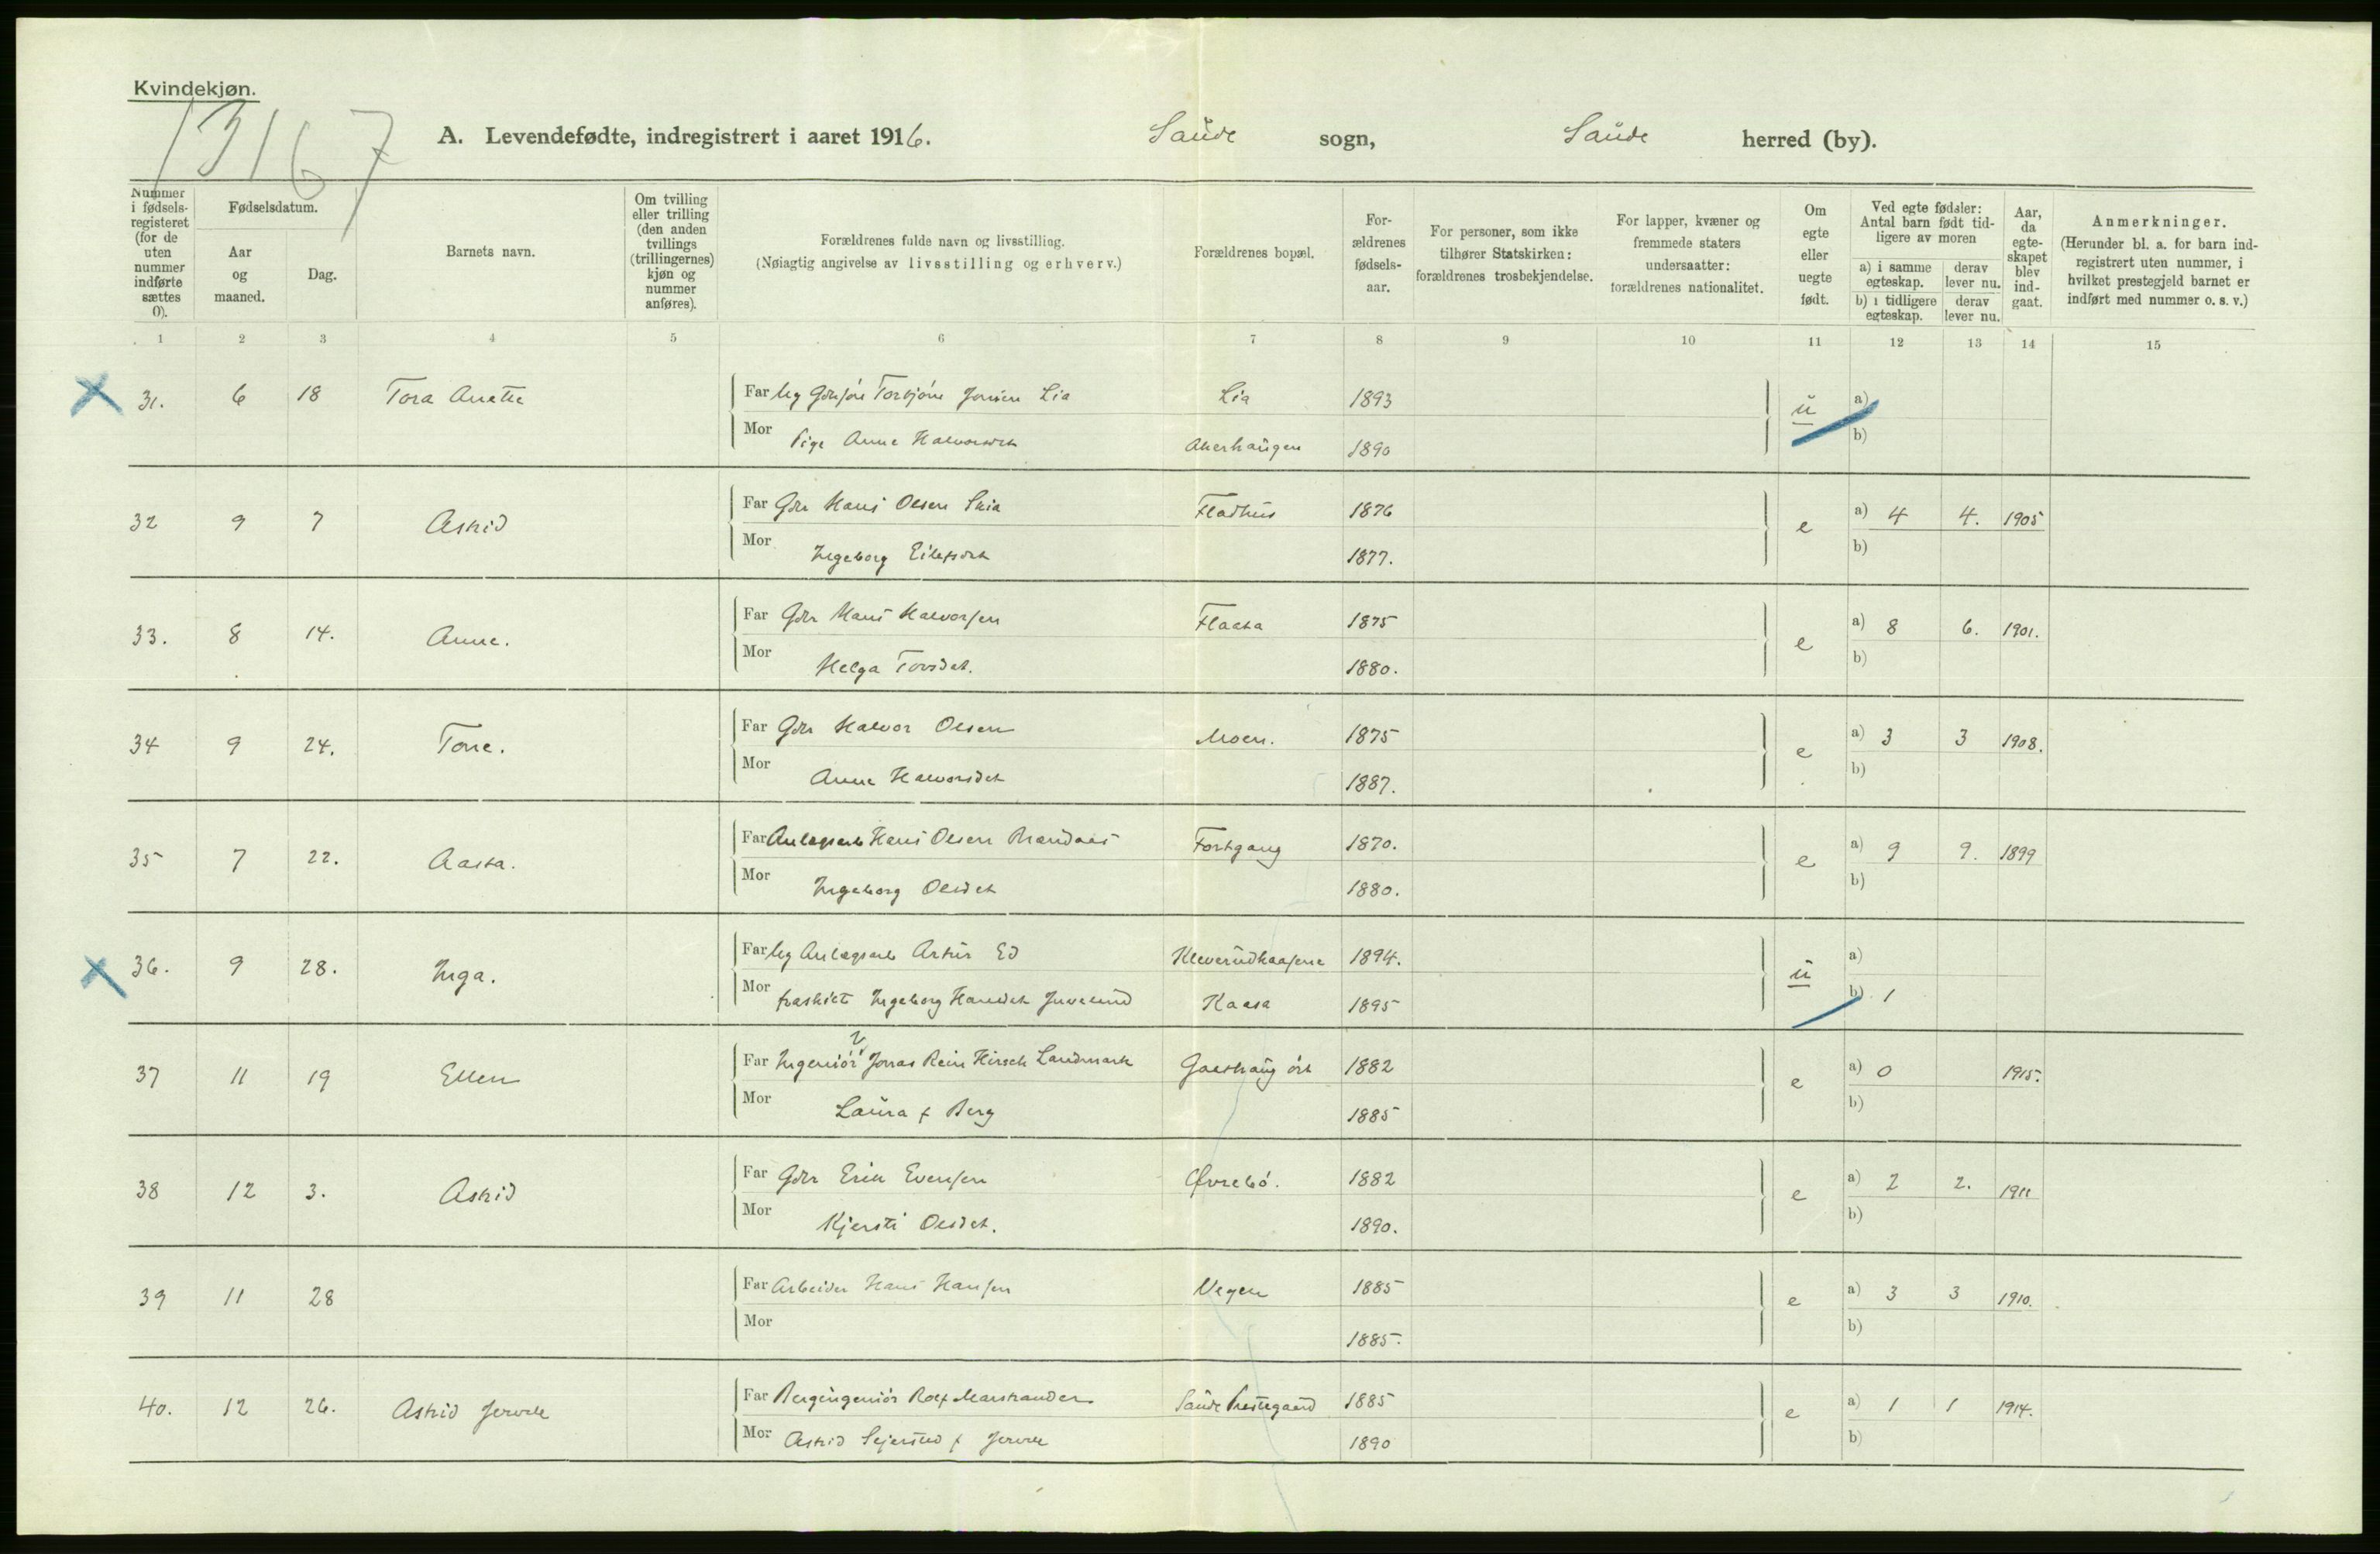 Kvindekjøn.
13167
A. Levendefødte, indregistrert i aaret 1916. Saude sogn, Saude herred (by).
Nummer i fødsels-registeret (for de uten nummer indførte sættes 0).
Fødselsdatum.
Aar og maaned.
Dag.
Barnets navn.
Om tvilling eller trilling (den anden tvillings (trillingernes) kjøn og nummer anføres).
Forældrenes fulde navn og livsstilling.
(Nøiagtig angivelse av livsstilling og erhverv.)
Forældrenes bopæl.
For-ældrenes fødsels-aar.
For personer, som ikke tilhører Statskirken: forældrenes trosbekjendelse.
For lapper, kvæner og fremmede staters undersaatter: forældrenes nationalitet.
Om egte eller uegte født.
Ved egte fødsler: Antal barn født tid-ligere av moren
a) i samme egteskap. derav lever nu.
b) i tidligere egteskap. derav lever nu.
Aar, da egte-skapet blev ind-gaat.
Anmerkninger.
(Herunder bl. a. for barn ind-registrert uten nummer, i hvilket prestegjeld barnet er indført med nummer o. s. v.)
1 2 3 4 5 6 7 8 9 10 11 12 13 14 15
31. 6 18 Tora Anette Far Torbjørn Lia Lia 1893 u a)
Mor Pige Anne Halvorsdt Akerhaugen 1890 b)
32 9 7 Astrid Far Gbr Hans Olsen Fladhus 1876 e a) 4 4. 1905
Mor Ingeborg 1877. b)
33. 8 14. Anne. Far Gbr Hans Halvorsen Flaata 1875 e a) 8 6. 1901.
Mor Helga Torsdt. 1880. b)
34 9 24. Tone. Far Gbr Halvor Olsen Moen. 1875 e a) 3 3 1908.
Mor Anne Halvorsdt 1887. b)
35 7 22. Aasta. Far Anlægsarb Hans Olsen Brandaas Fortgang 1870. e a) 9 9. 1899
Mor Ingeborg Olsdt 1880. b)
36. 9 28. Inga. Far Ug Anlægsarb Artur Ed 1894. u a)
Mor fraskilt Ingeborg Hansdt Kaasa 1895 b) 1
37 11 19 Ellen Far Ingeniør Jonas Rein Hirsch Landmark 1882 e a) 0 1915.
Mor Laura f Berg 1885 b)
38 12 3. Astrid Far Gbr Erik Evensen Øvrebø. 1882 e a) 2 2. 1911
Mor Kjersti Olsdt. 1890. b)
39 11 28 Far Arbeider Hans Hansen Vegen 1885 e a) 3 3 1910.
Mor 1885. b)
40. 12 26. Astrid Far Bergingeniør Rolf Marstrander Saude Prestegaard 1885 e a) 1 1 1914.
Mor Astrid Sejersted f 1890 b)